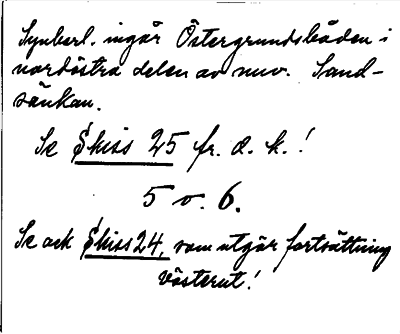 Synberl. ingår Östergrundsbåden i
nordöstra delen av nuv. Sand-
sänkan.
Se Skiss 25 fr. d. k.!
5 o. 6.
Se ock Skiss 24, som utgör fortsättning
västerut!